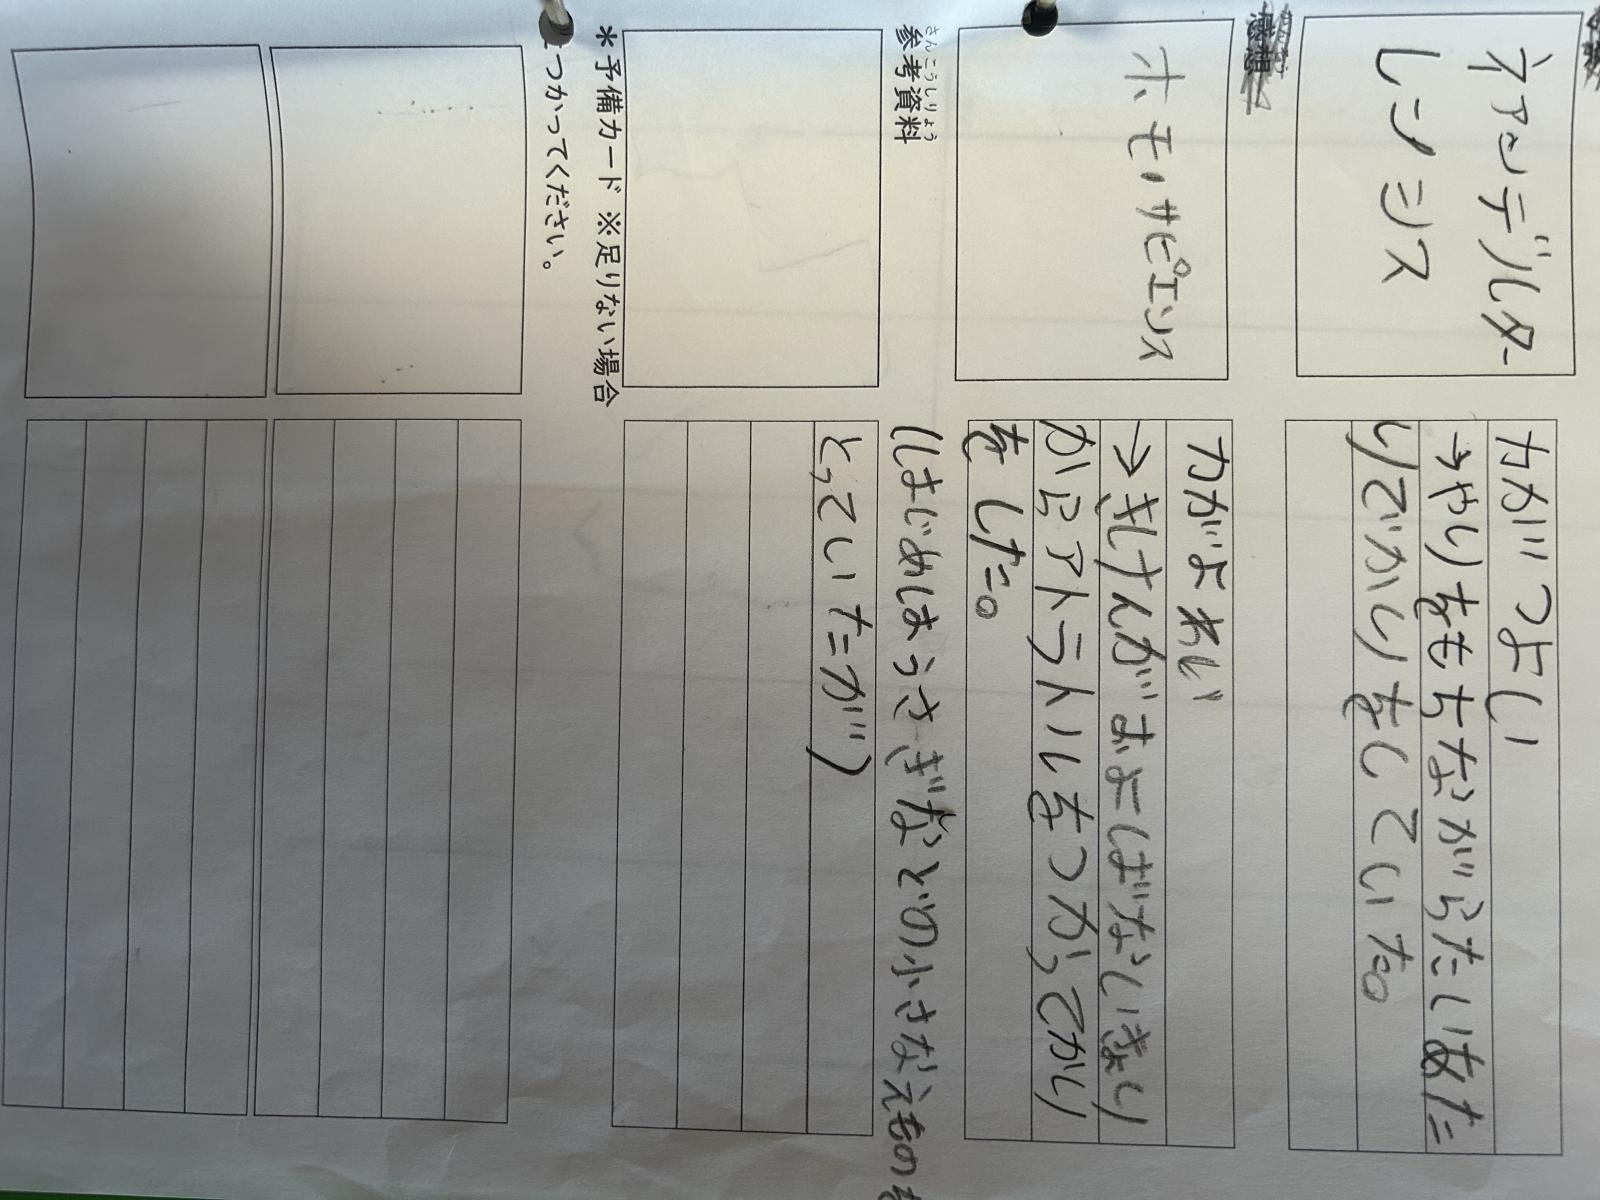 ネアンデルター
レンシス
力がつよい
→やりをもちながらたいあた
りでかりをしていた。
感想
ホモ・サピエンス
力がよわい
→きけんがおよばないきょり
からアトラトルをつかってかり
をした。
(はじめはうさぎなどの小さなえものを
とっていたが)
さんこうしりょう
参考資料
＊予備カード ※足りない場合
つかってください。